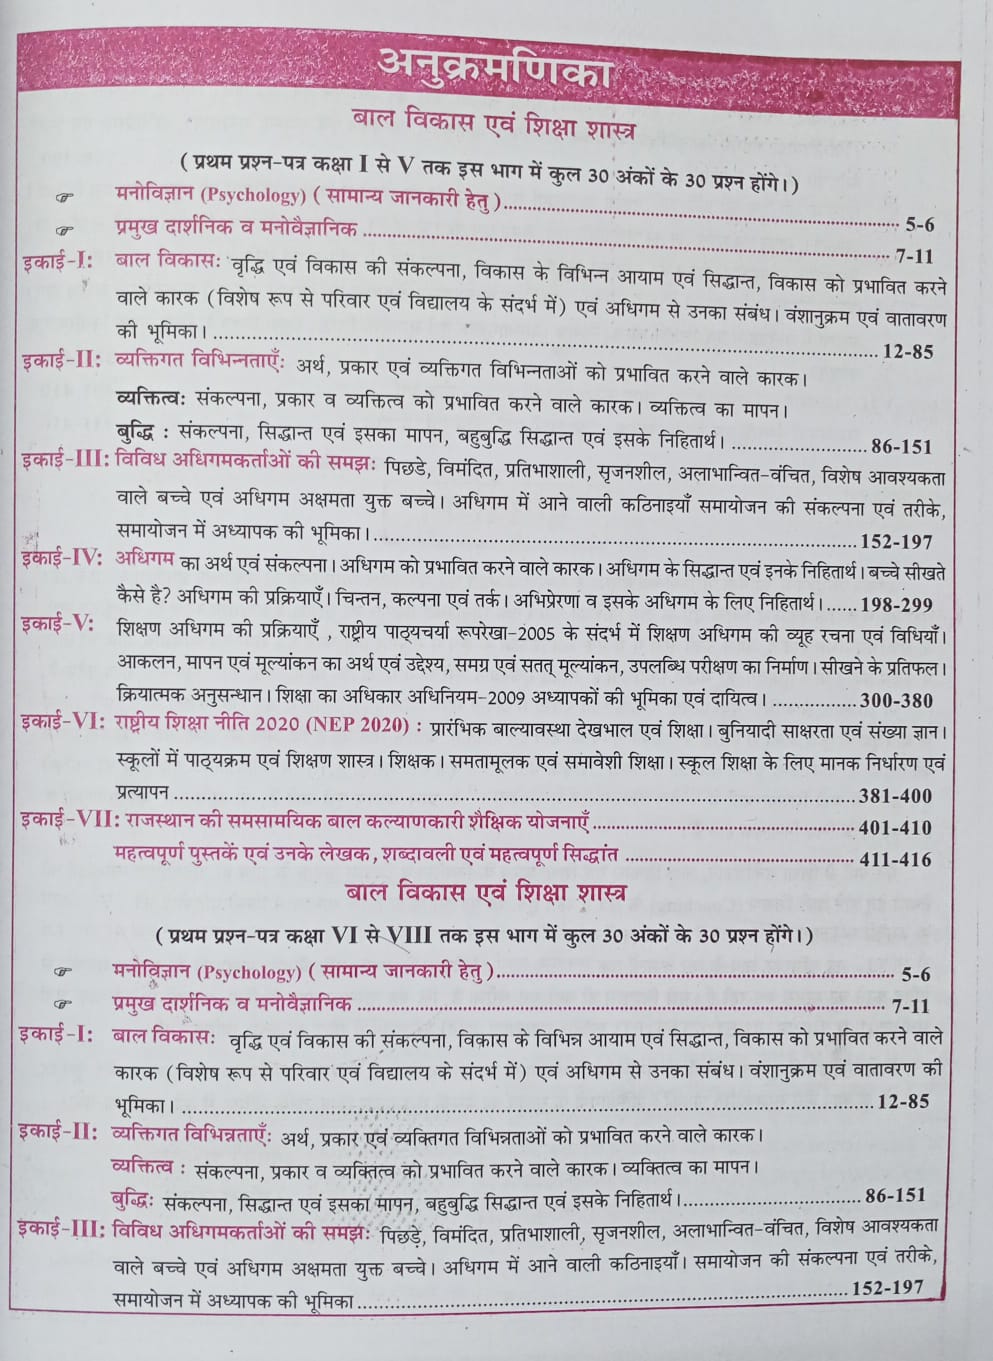 अनुक्रमणिका
बाल विकास एवं शिक्षा शास्त्र
( प्रथम प्रश्न-पत्र कक्षा I से V तक इस भाग में कुल 30 अंकों के 30 प्रश्न होंगे।)
☞ मनोविज्ञान (Psychology) ( सामान्य जानकारी हेतु )........ 5-6
☞ प्रमुख दार्शनिक व मनोवैज्ञानिक ........ 7-11
इकाई-I: बाल विकासः वृद्धि एवं विकास की संकल्पना, विकास के विभिन्न आयाम एवं सिद्धान्त, विकास को प्रभावित करने
वाले कारक (विशेष रूप से परिवार एवं विद्यालय के संदर्भ में) एवं अधिगम से उनका संबंध। वंशानुक्रम एवं वातावरण
की भूमिका। ........ 12-85
इकाई-II: व्यक्तिगत विभिन्नताएँः अर्थ, प्रकार एवं व्यक्तिगत विभिन्नताओं को प्रभावित करने वाले कारक।
व्यक्तित्वः संकल्पना, प्रकार व व्यक्तित्व को प्रभावित करने वाले कारक। व्यक्तित्व का मापन।
बुद्धि : संकल्पना, सिद्धान्त एवं इसका मापन, बहुबुद्धि सिद्धान्त एवं इसके निहितार्थ। ........ 86-151
इकाई-III: विविध अधिगमकर्ताओं की समझः पिछडे, विमंदित, प्रतिभाशाली, सृजनशील, अलाभान्वित-वंचित, विशेष आवश्यकता
वाले बच्चे एवं अधिगम अक्षमता युक्त बच्चे। अधिगम में आने वाली कठिनाइयाँ समायोजन की संकल्पना एवं तरीके,
समायोजन में अध्यापक की भूमिका। ........ 152-197
इकाई-IV: अधिगम का अर्थ एवं संकल्पना। अधिगम को प्रभावित करने वाले कारक। अधिगम के सिद्धान्त एवं इनके निहितार्थ। बच्चे सीखते
कैसे है? अधिगम की प्रक्रियाएँ। चिन्तन, कल्पना एवं तर्क। अभिप्रेरणा व इसके अधिगम के लिए निहितार्थ। ...... 198-299
इकाई-V: शिक्षण अधिगम की प्रक्रियाएँ , राष्ट्रीय पाठ्यचर्या रूपरेखा-2005 के संदर्भ में शिक्षण अधिगम की व्यूह रचना एवं विधियाँ।
आकलन, मापन एवं मूल्यांकन का अर्थ एवं उद्देश्य, समग्र एवं सतत् मूल्यांकन, उपलब्धि परीक्षण का निर्माण। सीखने के प्रतिफल।
क्रियात्मक अनुसन्धान। शिक्षा का अधिकार अधिनियम-2009 अध्यापकों की भूमिका एवं दायित्व। ........ 300-380
इकाई-VI: राष्ट्रीय शिक्षा नीति 2020 (NEP 2020) : प्रारंभिक बाल्यावस्था देखभाल एवं शिक्षा। बुनियादी साक्षरता एवं संख्या ज्ञान।
स्कूलों में पाठ्यक्रम एवं शिक्षण शास्त्र। शिक्षक। समतामूलक एवं समावेशी शिक्षा। स्कूल शिक्षा के लिए मानक निर्धारण एवं
प्रत्यापन ........ 381-400
इकाई-VII: राजस्थान की समसामयिक बाल कल्याणकारी शैक्षिक योजनाएँ ........ 401-410
महत्वपूर्ण पुस्तकें एवं उनके लेखक, शब्दावली एवं महत्वपूर्ण सिद्धांत ........ 411-416
बाल विकास एवं शिक्षा शास्त्र
( प्रथम प्रश्न-पत्र कक्षा VI से VIII तक इस भाग में कुल 30 अंकों के 30 प्रश्न होंगे।)
☞ मनोविज्ञान (Psychology) ( सामान्य जानकारी हेतु )........ 5-6
☞ प्रमुख दार्शनिक व मनोवैज्ञानिक ........ 7-11
इकाई-I: बाल विकासः वृद्धि एवं विकास की संकल्पना, विकास के विभिन्न आयाम एवं सिद्धान्त, विकास को प्रभावित करने वाले
कारक (विशेष रूप से परिवार एवं विद्यालय के संदर्भ में) एवं अधिगम से उनका संबंध। वंशानुक्रम एवं वातावरण की
भूमिका। ........ 12-85
इकाई-II: व्यक्तिगत विभिन्नताएँः अर्थ, प्रकार एवं व्यक्तिगत विभिन्नताओं को प्रभावित करने वाले कारक।
व्यक्तित्व : संकल्पना, प्रकार व व्यक्तित्व को प्रभावित करने वाले कारक। व्यक्तित्व का मापन।
बुद्धिः संकल्पना, सिद्धान्त एवं इसका मापन, बहुबुद्धि सिद्धान्त एवं इसके निहितार्थ। ........ 86-151
इकाई-III: विविध अधिगमकर्ताओं की समझः पिछड़े, विमंदित, प्रतिभाशाली, सृजनशील, अलाभान्वित-वंचित, विशेष आवश्यकता
वाले बच्चे एवं अधिगम अक्षमता युक्त बच्चे। अधिगम में आने वाली कठिनाइयाँ। समायोजन की संकल्पना एवं तरीके,
समायोजन में अध्यापक की भूमिका ........ 152-197